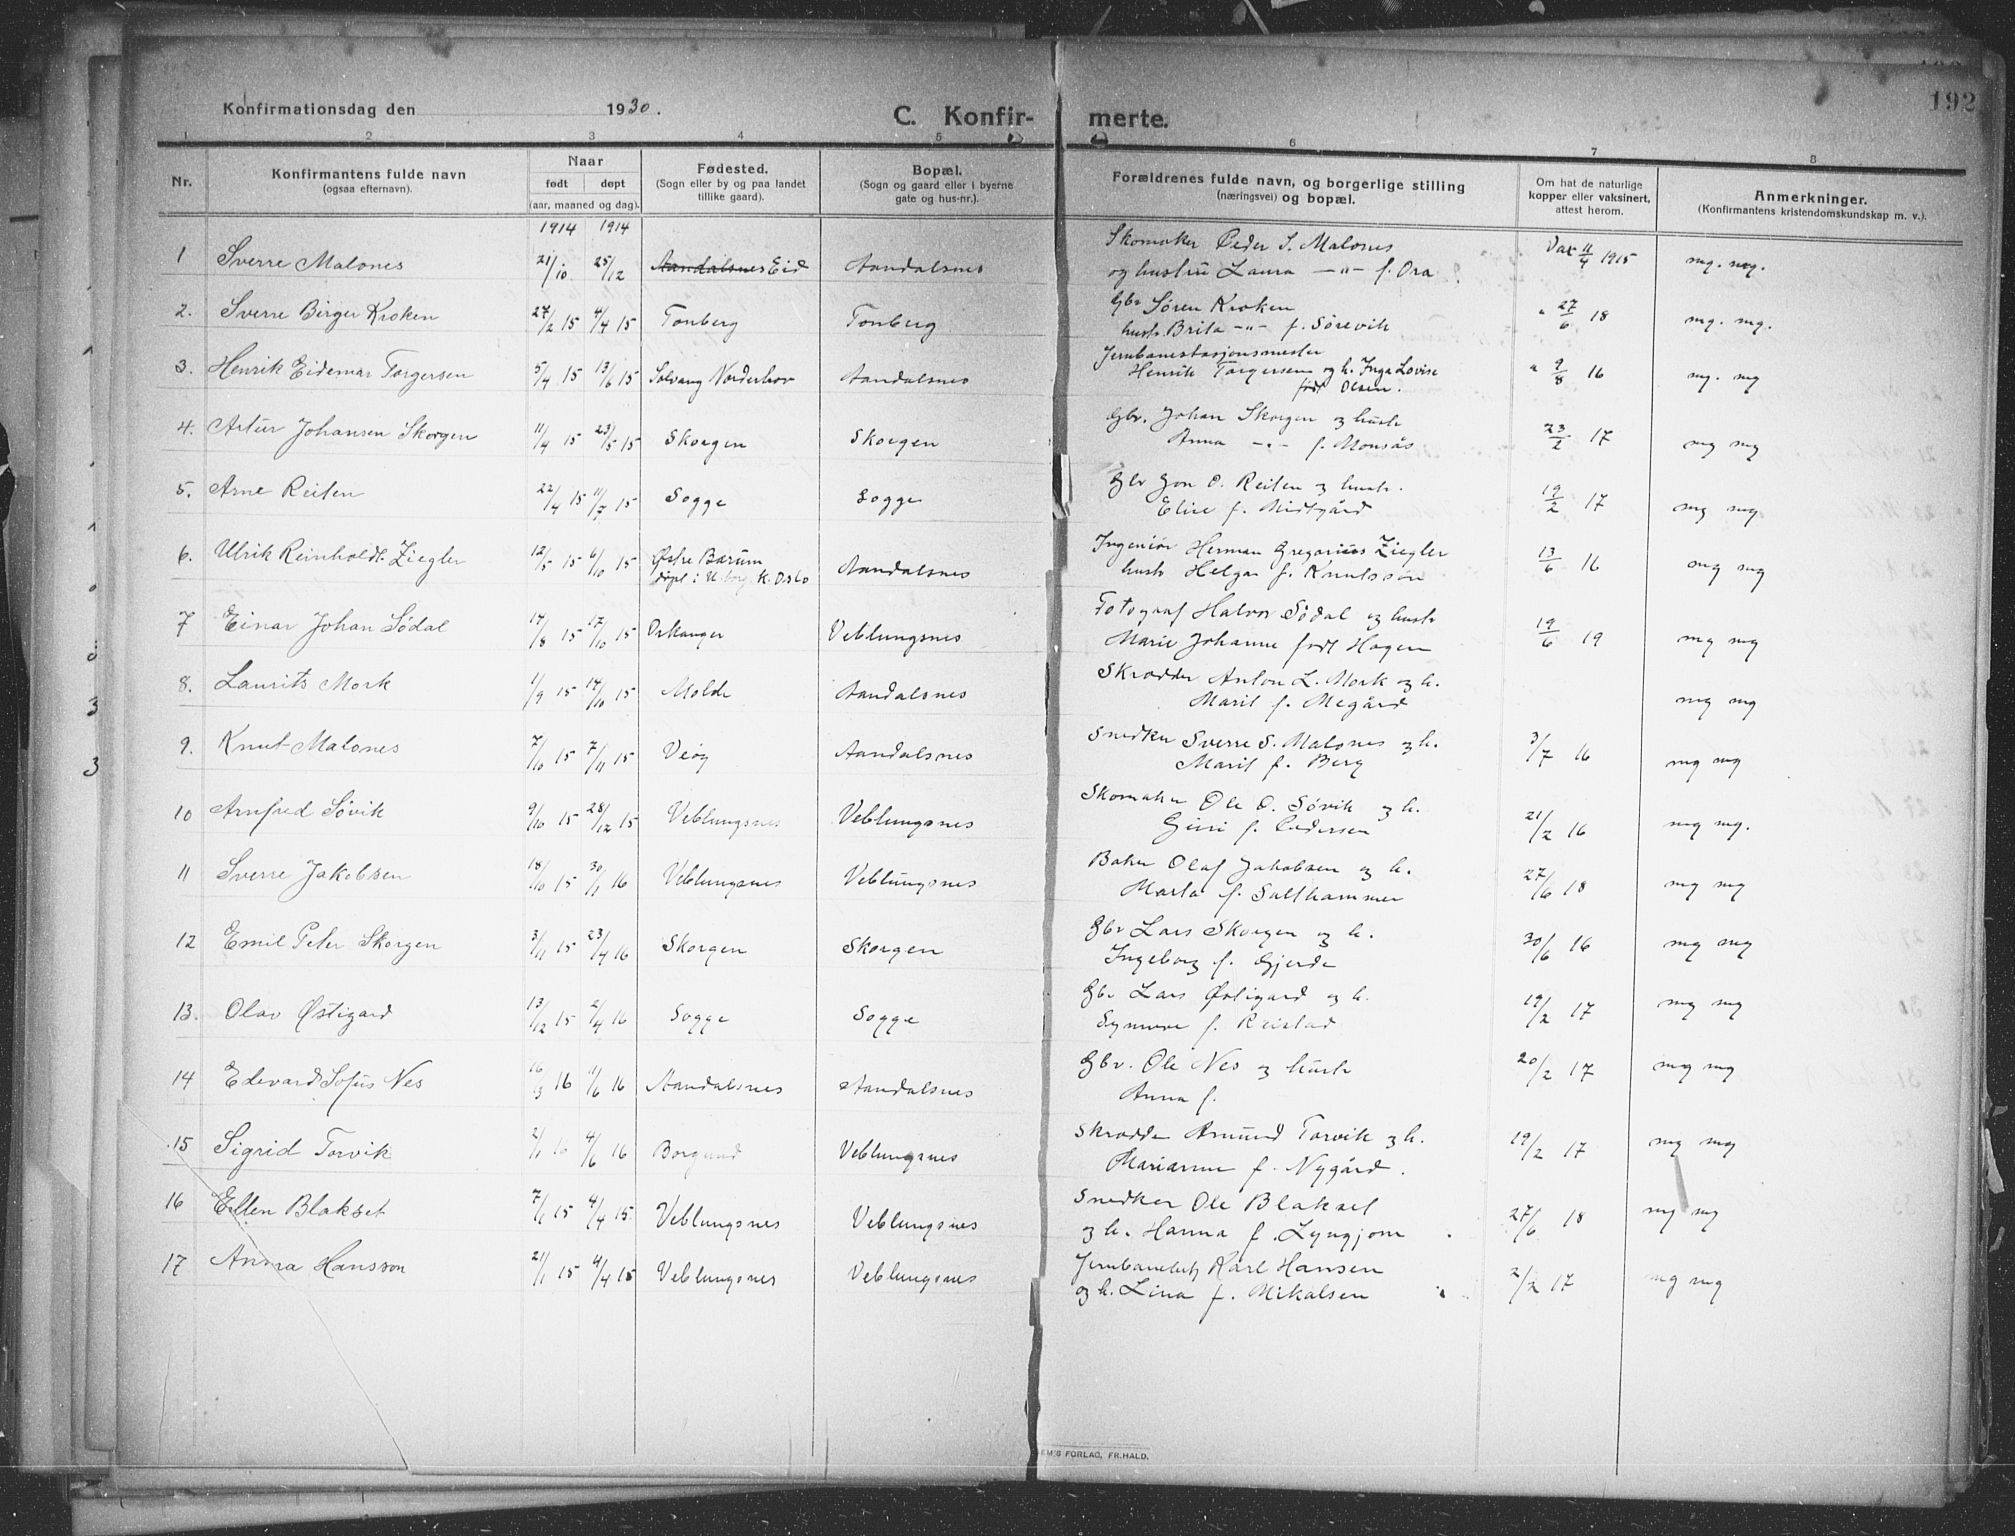 Konfirmationsdag den 1930.
C. Konfirmerte.
192
1 2 3 4 5 6 7 8
Nr. Konfirmantens fulde navn (ogsaa efternavn). Naar født døpt (aar, maaned og dag). Fødested. (Sogn eller by og paa landet tillike gaard). Bopæl. (Sogn og gaard eller i byerne gate og hus-nr.). Forældrenes fulde navn, og borgerlige stilling (næringsvei) og bopæl. Om hat de naturlige kopper eller vaksinert, attest herom. Anmerkninger. (Konfirmantens kristendomskundskap m. v.).
1914 1914
1 Sverre Malones 21/10 25/12 Aandalsnes Eid Aandalsnes Skomaker Peder S. Malones Vac 11/4 1915 mg. mg.
og hustru Laura —"— f. Ora
2. Sverre Birger Kroken 27/2 15 4/4 15 Tonberg Tonberg Gbr Søren Kroken " 27/6 18 mg. mg.
hustr. Brita —"— f. Sørevik
3. Henrik Eidemar Torgersen 5/4 15 13/6 15 Solvang Norderhov Aandalsnes Jernbanestasjonsmester " 9/8 16 mg. mg
Henrik Torgersen og h. Inga Lovise
født Olsen.
4. Artur Johansen Skorgen 11/4 15 23/5 15 Skorgen Skorgen Gbr. Johan Skorgen og hustr 23/2 17 mg mg
Anna —"— f. Monsås
5. Arne Reiten 22/4 15 11/7 15 Sogge Sogge Gbr Jon O. Reiten og hustr. 19/2 17 mg mg
Elise f. Midtgård
6. Ulrik Reinholdt Ziegler 12/5 15 6/10 15 Østre Bærum Aandalsnes Ingeniør Herman Gregorius Ziegler 13/6 16 mg mg
døpt i K. Oslo hustr Helga f. Knutsson
7 Einar Johan Södal 14/8 15 17/10 15 Orkanger Veblungsnes Fotograf Halvor Södal og hustr 19/6 19 mg mg
Marie Johanne født Hagen
8. Laurits Mork 1/9 15 17/10 15 Molde Aandalsnes Skrædder Anton L. Mork og h. mg mg
Marit f. Megård
9. Knut Malones 7/10 15 7/11 15 Veöy Aandalsnes Snedker Sverre S. Malones og h. 3/7 16 mg mg
Marit f. Berg
10 Arnfred Sövik 9/10 15 28/12 15 Veblungsnes Veblungsnes Skomaker Ole O. Sövik og h. 21/2 16 mg mg.
Guri f. Pedersen
11 Sverre Jakobsen 18/10 15 30/1 16 Veblungsnes Veblungsnes Baker Olaf Jakobsen og h. 27/6 18 mg mg
Marta f. Salthammer
12 Emil Peter Skorgen 3/11 15 23/4 16 Skorgen Skorgen Gbr Lars Skorgen og h. 30/6 16 mg mg
Ingeborg f. Gjerde
13. Olav Østigard 13/12 15 2/4 16 Sogge Sogge Gbr Lars Østigard og h. 19/2 17 mg mg
Synnøve f. Reistad
14 Edevard Sofus Nes 16/3 16 11/6 16 Aandalsnes Aandalsnes Gbr. Ole Nes og hustr 20/2 17 mg mg
Anna f.
15 Sigrid Torvik 2/1 16 4/6 16 Borgund Veblungsnes Skrædder Amund Torvik og h. 19/2 17 mg mg
Marianne f. Nygård.
16 Ellen Blakset 7/1 15 4/4 15 Veblungsnes Veblungsnes Snedker Ole Blakset 27/6 18 mg mg
og h. Hanna f. Lyngjom
17 Anna Hansson 21/1 15 4/4 15 Veblungsnes Veblungsnes Jernbanebetj Karl Hansen 2/2 17 mg mg
og h. Lina f. Mikalsen
FORLAG, FR.HALD.